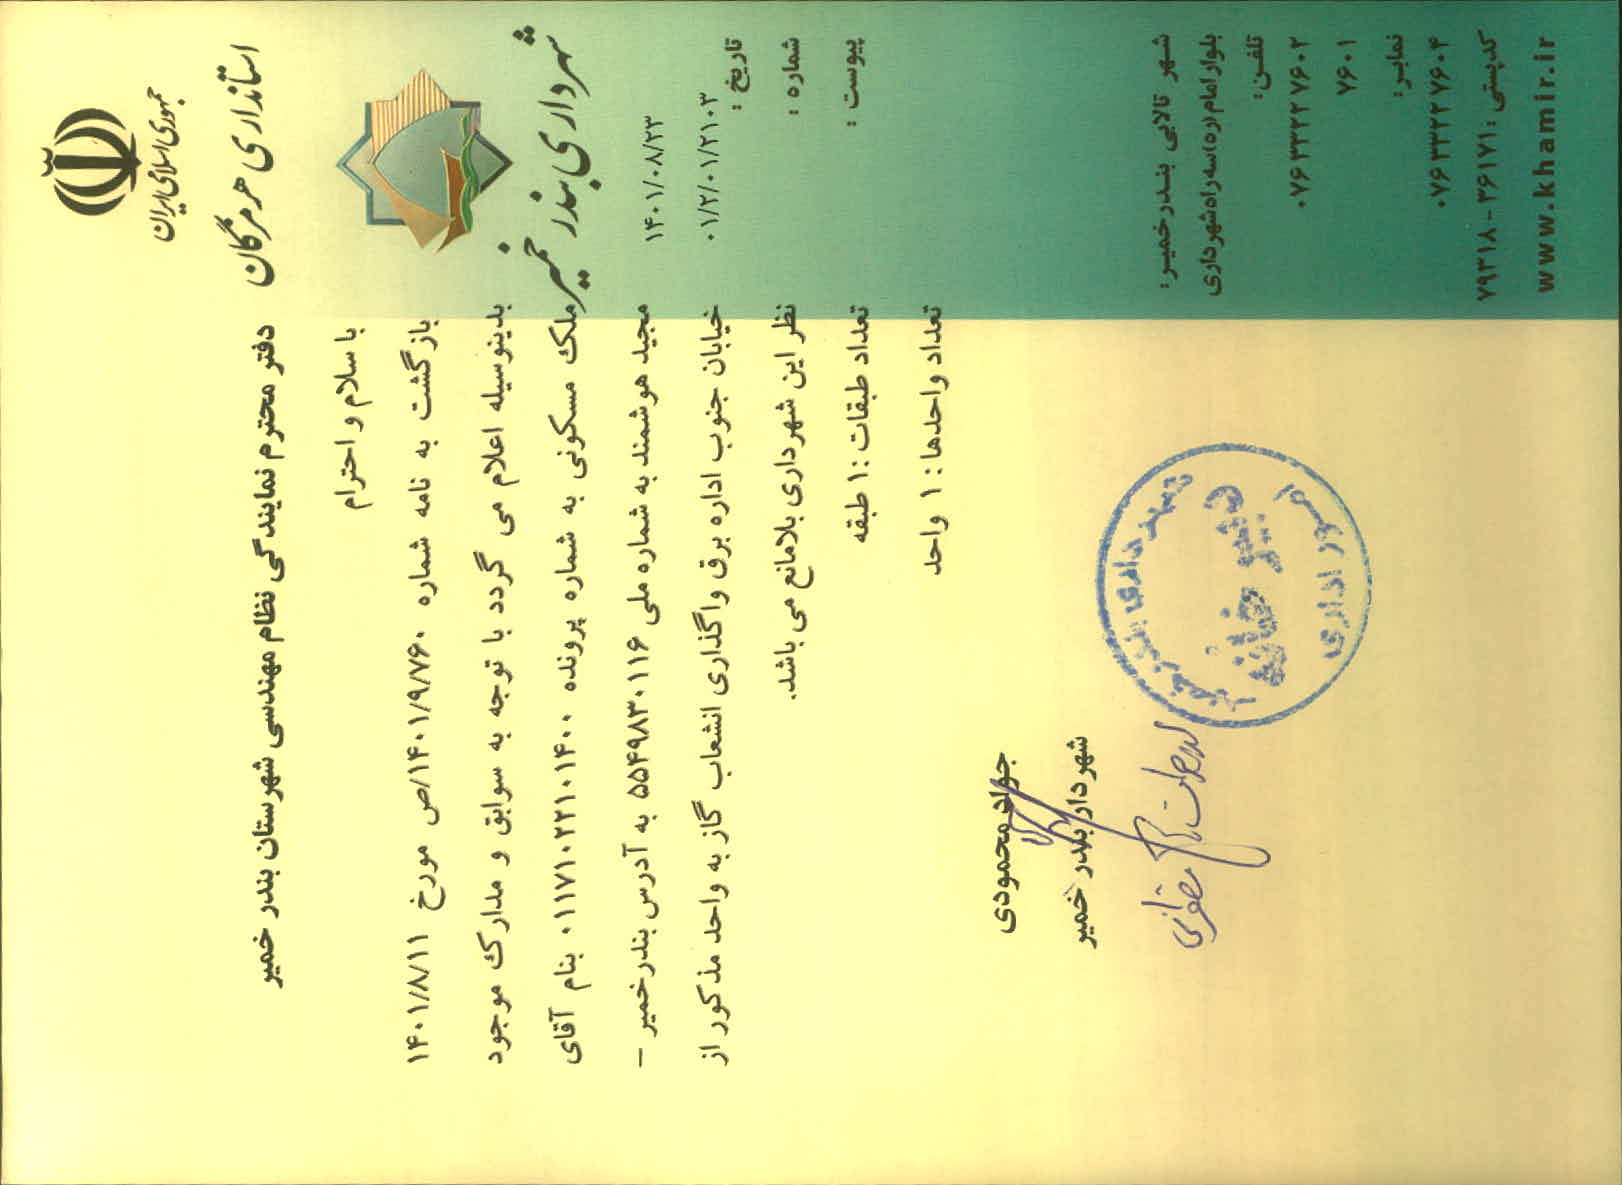 جمهوری اسلامی ایران
استانداری هرمزگان
شهرداری بندر خمیر
تاریخ :
۱۴۰۱/۰۸/۲۳
شماره :
۰۱/۲/۰۱/۲۱۰۳
پیوست :
دفتر محترم نمایندگی نظام مهندسی شهرستان بندر خمیر
با سلام و احترام
بازگشت به نامه شماره ۱۴۰۱/۹/۷۶۰/ص مورخ ۱۴۰۱/۸/۱۱
بدینوسیله اعلام می گردد با توجه به سوابق و مدارک موجود
ملک مسکونی به شماره پرونده ۰۱۱۷۱۰۲۲۱۰۱۴۰۰ بنام آقای
مجید هوشمند به شماره ملی ۵۵۴۹۸۳۰۱۱۶ به آدرس بندرخمیر –
خیابان جنوب اداره برق واگذاری انشعاب گاز به واحد مذکور از
نظر این شهرداری بلامانع می باشد.
تعداد طبقات :۱ طبقه
تعداد واحدها : ۱ واحد
جواد محمودی
شهردار بندر خمیر
شهرداری بندر خمیر
دبیرخانه
امور اداری
شهر تالابی بندرخمیر:
بلوار امام(ره)سه راه شهرداری
تلفن:
۰۷۶۳۳۳۲۷۶۰۲
۷۶۰۱
نمابر:
۰۷۶۳۳۲۲۷۶۰۴
کدپستی :۳۶۱۷۱-۷۹۳۱۸
www.khamir.ir